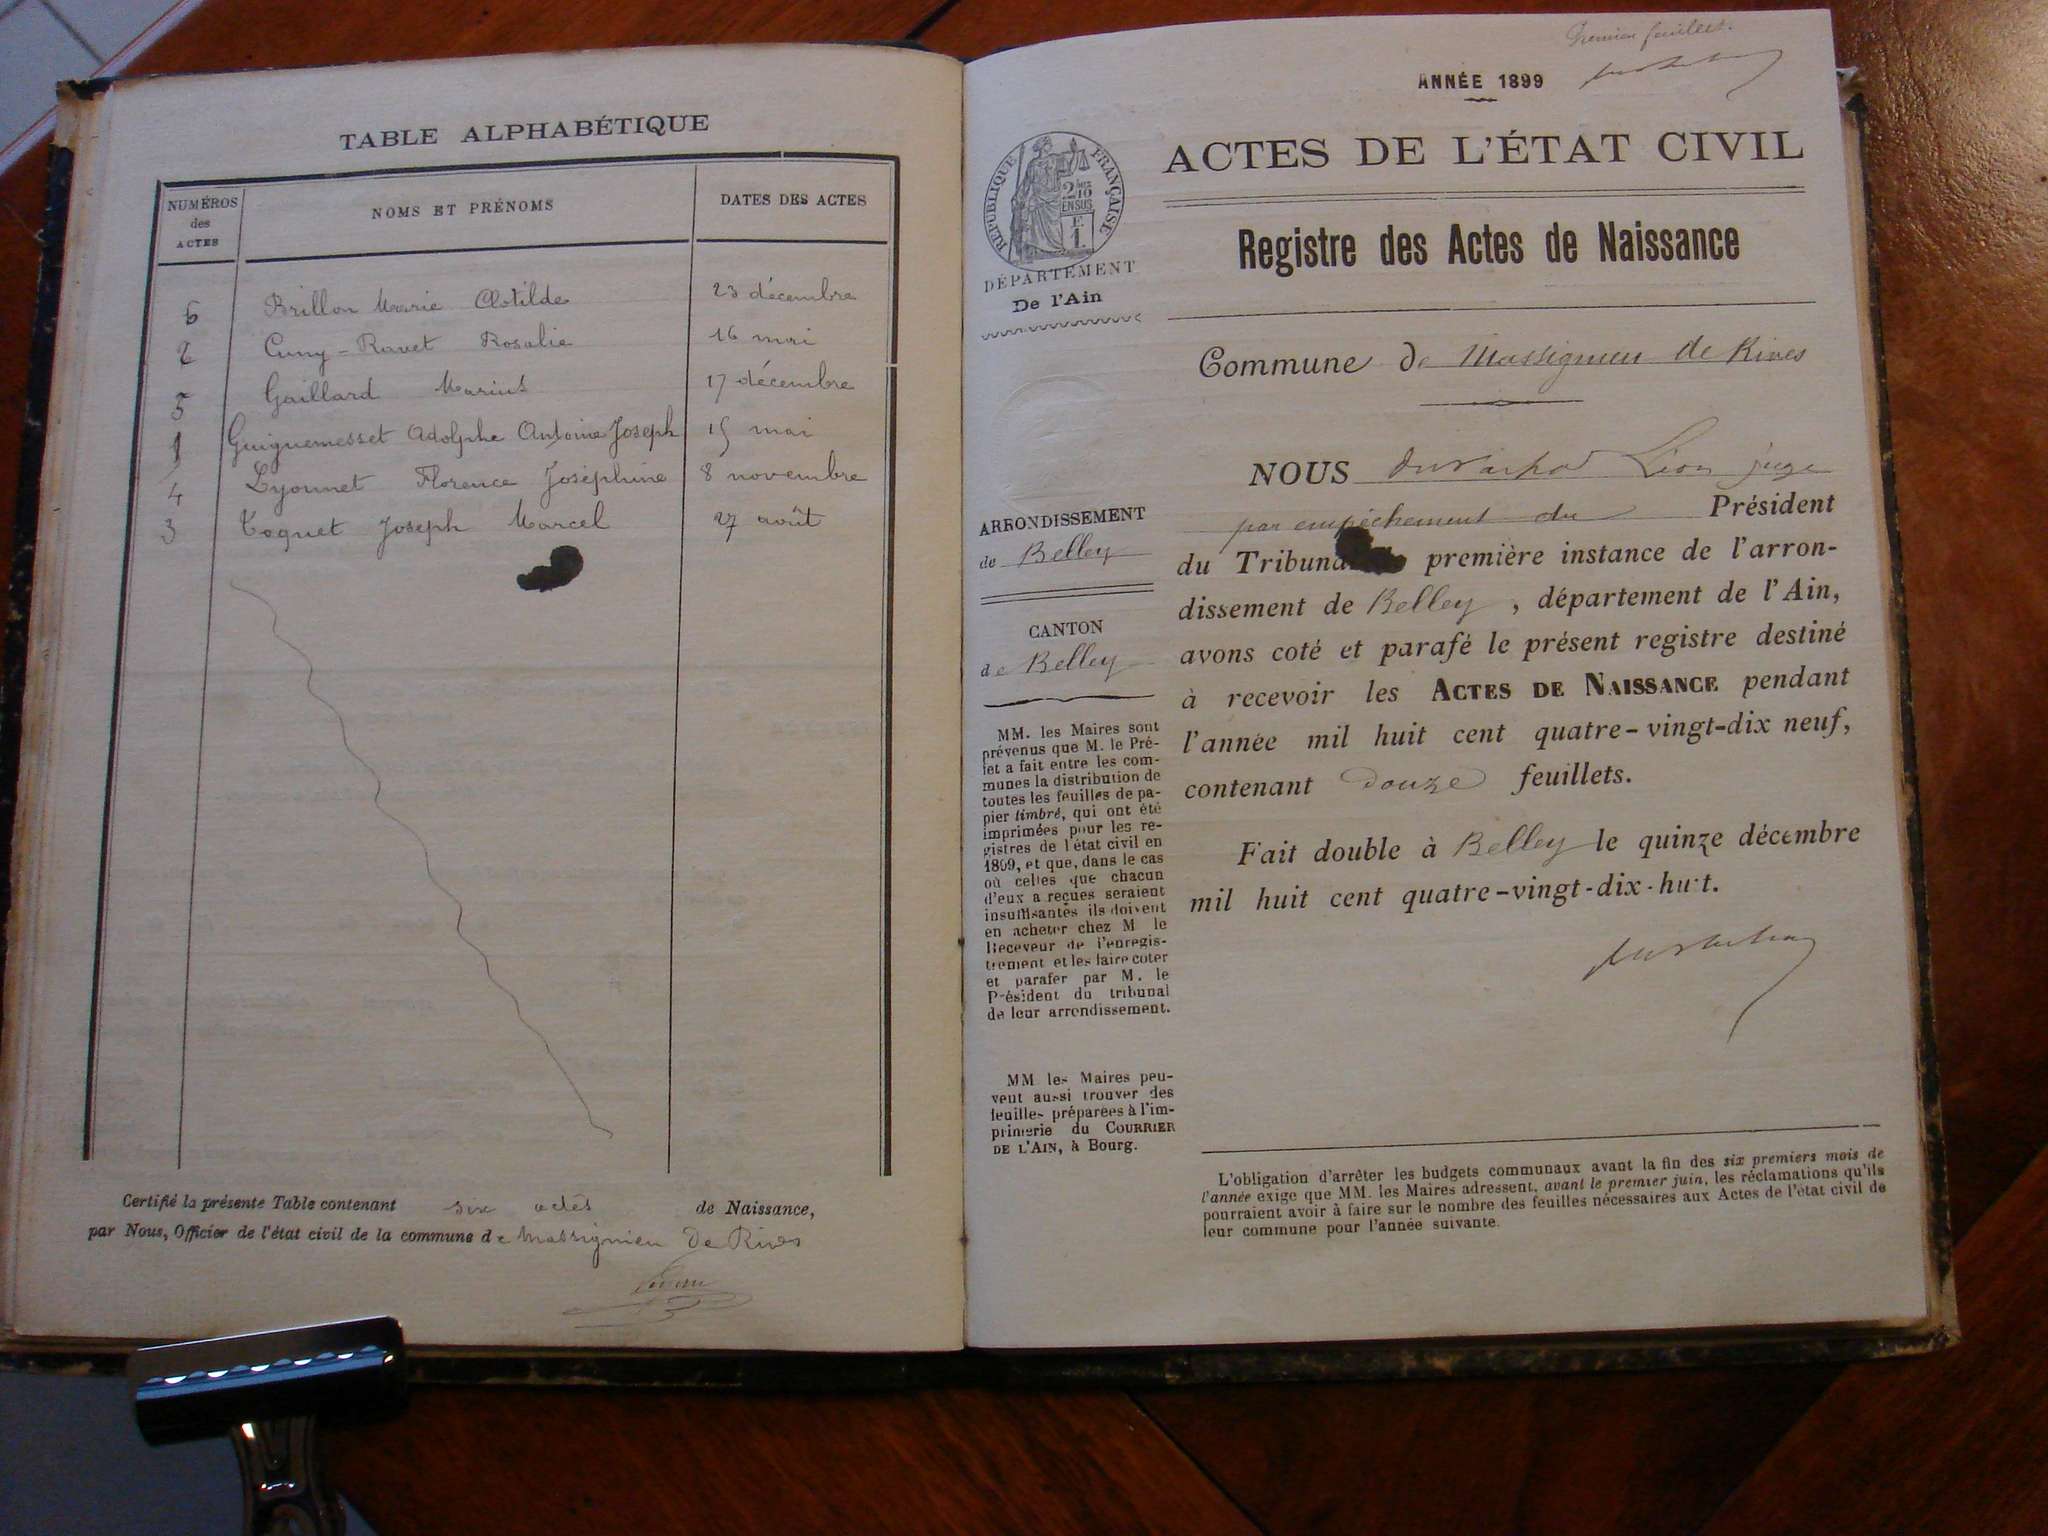 TABLE ALPHABÉTIQUE
NUMÉROS des ACTES
NOMS ET PRÉNOMS
DATES DES ACTES
6 Brillon Marie Clotilde 23 décembre
2 Cuny-Ravet Rosalie 16 mai
5 Gaillard Marius 17 décembre
1 Guiguemesset Adolphe Antoine Joseph 15 mai
4 Lyonnet Florence Joséphine 8 novembre
3 Toquet Joseph Marcel 27 août
Certifié la présente Table contenant six actes de Naissance,
par Nous, Officier de l'état civil de la commune de Massignieu de Rives
Premier feuillet.
ANNÉE 1899
ACTES DE L'ÉTAT CIVIL
Registre des Actes de Naissance
RÉPUBLIQUE FRANÇAISE
2/10 EN SUS
F. 1.
DÉPARTEMENT
De l'Ain
Commune de Massignieu de Rives
NOUS Léon juge
par empêchement du Président
du première instance de l'arron-
dissement de Belley, département de l'Ain,
avons coté et parafé le présent registre destiné
à recevoir les ACTES DE NAISSANCE pendant
l'année mil huit cent quatre-vingt-dix neuf,
contenant douze feuillets.
Fait double à Belley le quinze décembre
mil huit cent quatre-vingt-dix-huit.
ARRONDISSEMENT
de Belley
CANTON
de Belley
MM. les Maires sont
prévenus que M. le Pré-
fet a fait entre les com-
munes la distribution de
toutes les feuilles de pa-
pier timbré, qui ont été
imprimées pour les re-
gistres de l'état civil en
1899, et que, dans le cas
où celles que chacun
d'eux a reçues seraient
insuffisantes ils doivent
en acheter chez M le
Receveur de l'enregis-
trement et les faire coter
et parafer par M. le
Président du tribunal
de leur arrondissement.
MM les Maires peu-
vent aussi trouver des
feuilles préparées à l'im-
primerie du COURRIER
DE L'AIN, à Bourg.
L'obligation d'arrêter les budgets communaux avant la fin des six premiers mois de
l'année exige que MM. les Maires adressent, avant le premier juin, les réclamations qu'ils
pourraient avoir à faire sur le nombre des feuilles nécessaires aux Actes de l'état civil de
leur commune pour l'année suivante.